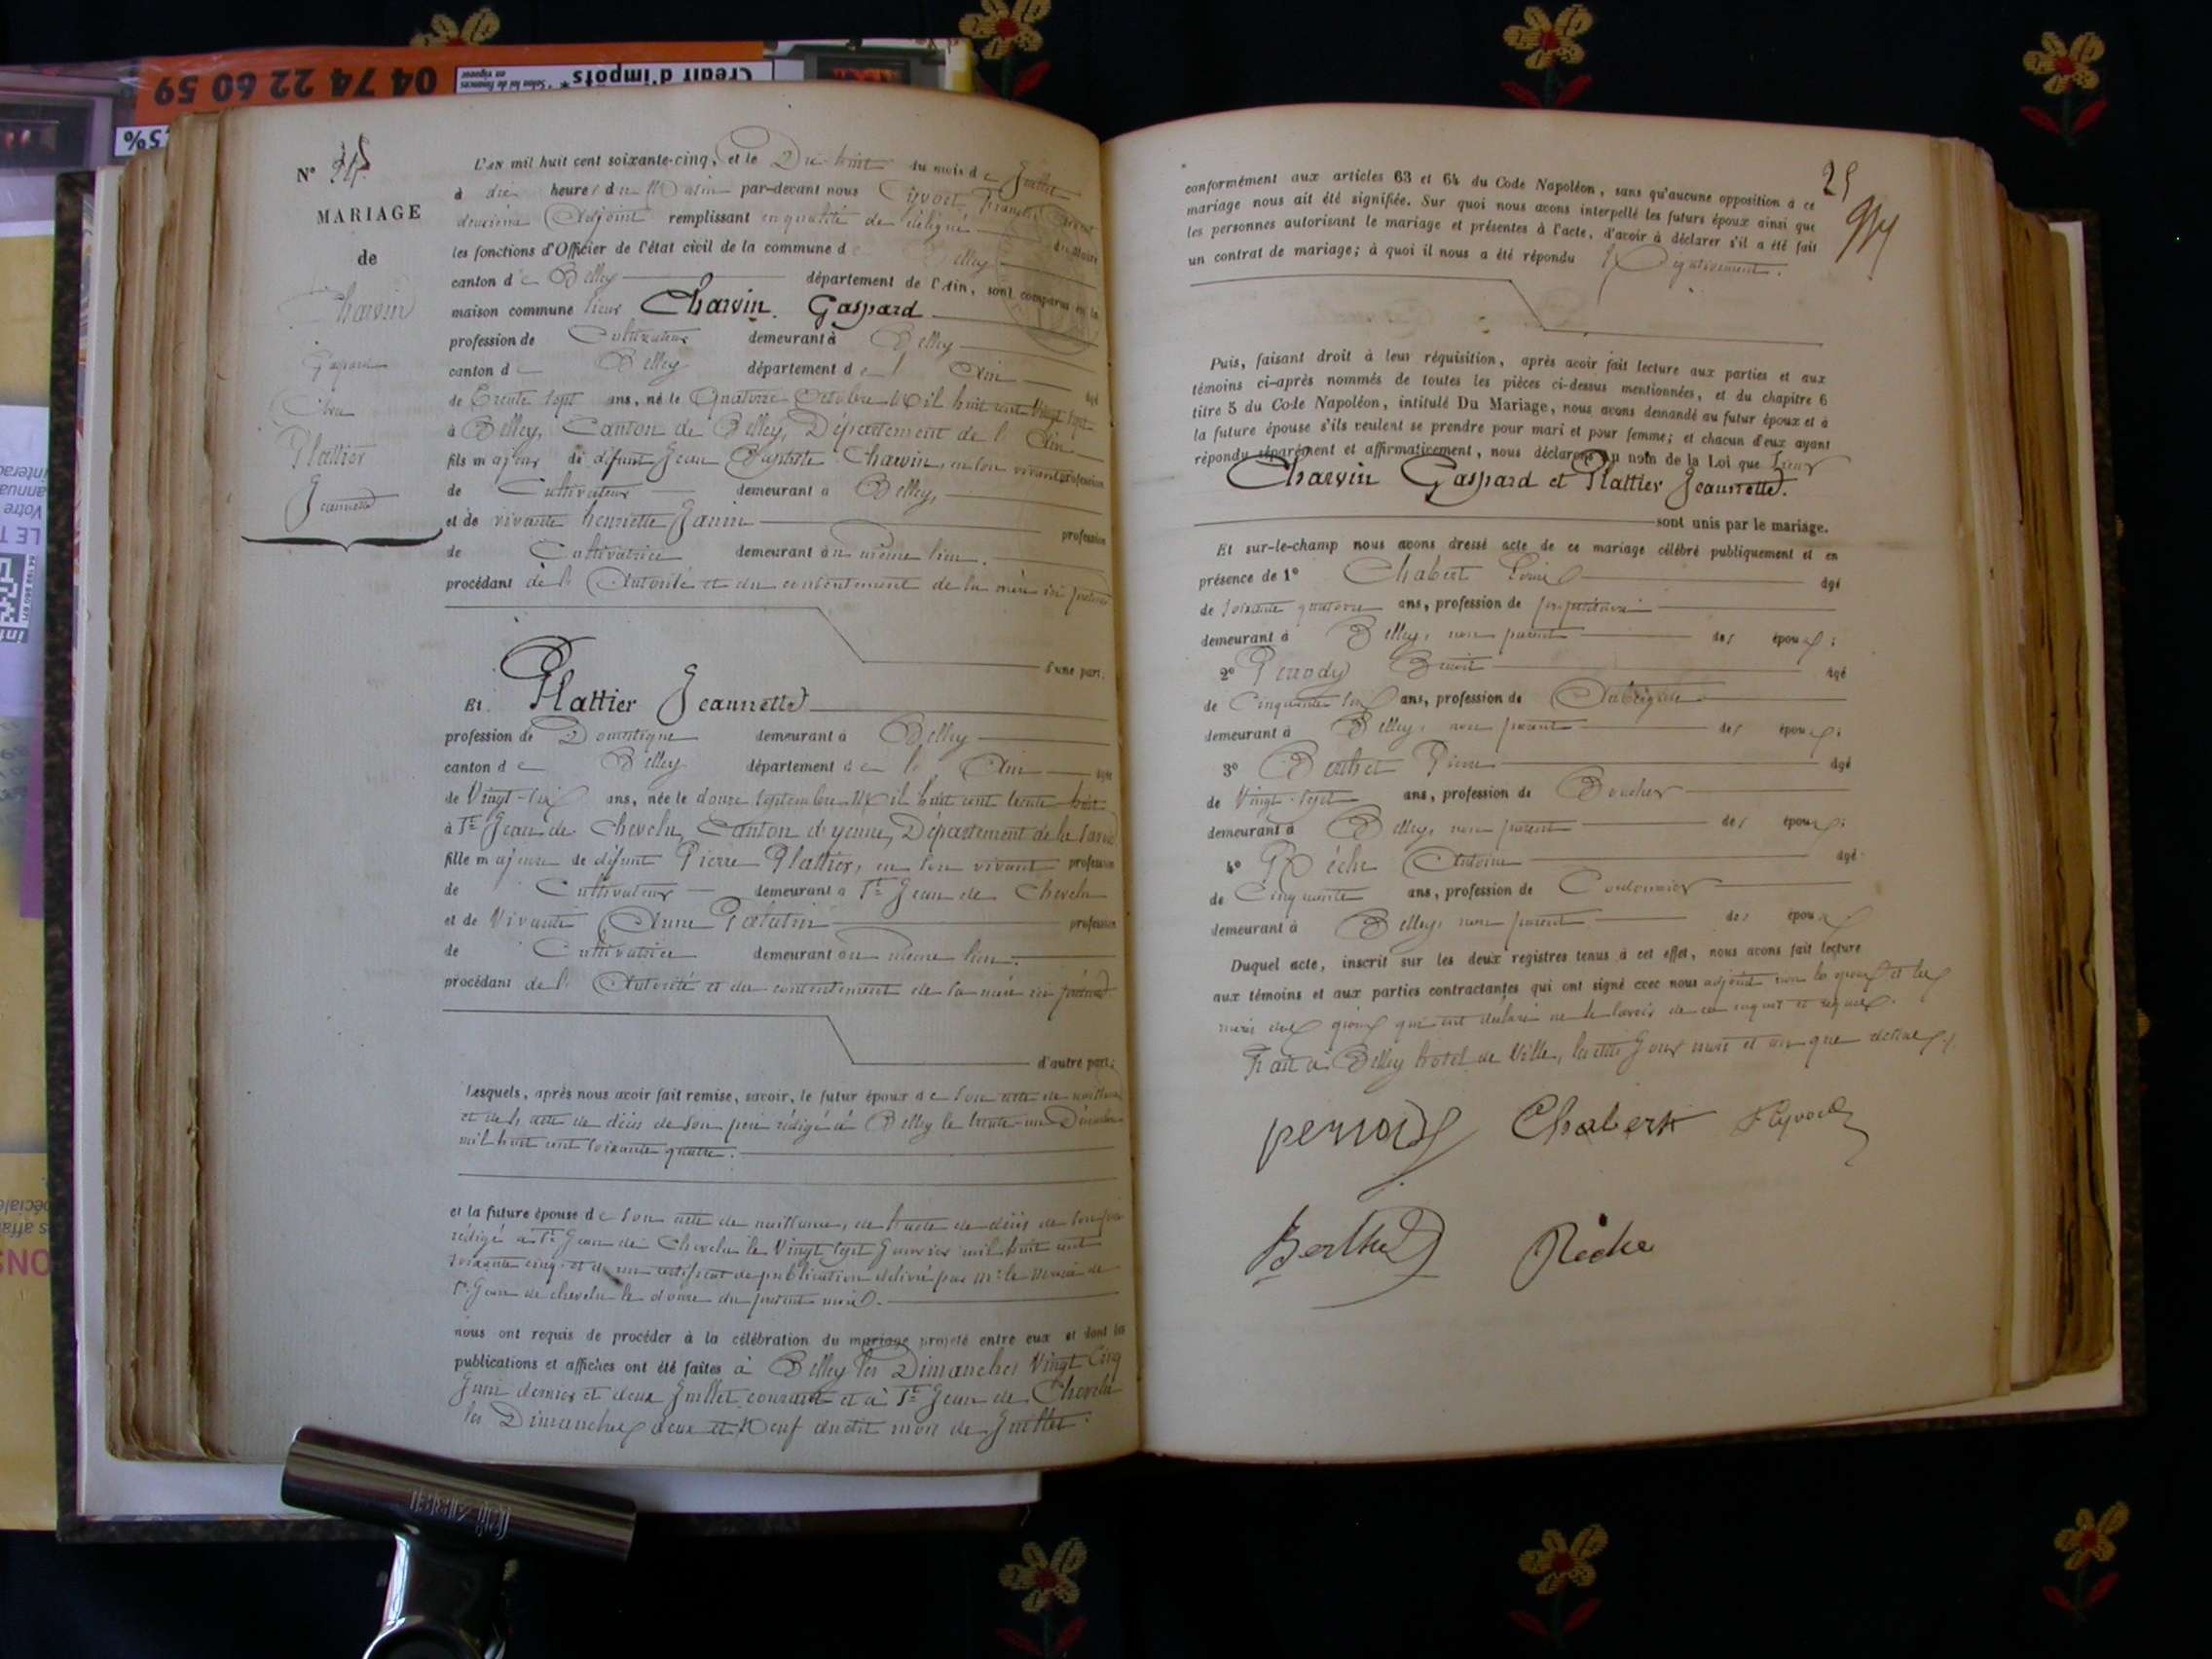 04 74 22 60 59
Crédit d'impôts*
*Selon loi de finances
en vigueur
,5%
N°
MARIAGE
de
Charvin
Gaspard
Et
Plattier
Jeannette
L'AN mil huit cent soixante-cinq, et le Dix huit du mois de Juillet
à dix heures du Matin par-devant nous
deuxième Adjoint remplissant en qualité de délégué
les fonctions d'Officier de l'état civil de la commune de Belley
canton de Belley département de l'Ain, sont comparus en la
maison commune sieur Charvin Gaspard
profession de Cultivateur demeurant à Belley
canton de Belley département de l'Ain âgé
de Trente sept ans, né le Quatorze Octobre Mil huit cent Vingt sept
à Belley, Canton de Belley, Département de l'Ain
fils majeur de défunt Jean Baptiste Charvin, en son vivant profession
de Cultivateur demeurant à Belley,
et de vivante henriette Janin profession
de Cultivatrice demeurant au même lieu.
procédant de l'Autorité et du consentement de la mère ici présente
d'une part.
Et Plattier Jeannette
profession de Domestique demeurant à Belley
canton de Belley département de l'Ain âgée
de Vingt-six ans, née le douze Septembre Mil huit cent trente huit
à St Jean de Chevelu, Canton d'yenne, Département de la Savoie
fille majeure de défunt Pierre Plattier, en son vivant profession
de Cultivateur demeurant à St Jean de Chevelu
et de Vivante Anne profession
de Cultivatrice demeurant au même lieu.
procédant de l'Autorité et du consentement de sa mère ici présente
d'autre part.
Lesquels, après nous avoir fait remise, savoir, le futur époux de son acte de naissance
et de l'acte de décès de son père rédigé à Belley le trente-un Décembre
mil huit cent soixante quatre.
et la future épouse de son acte de naissance, de l'acte de décès de son père
rédigé à St Jean de Chevelu le Vingt sept Janvier mil huit cent
soixante cinq et d'un certificat de publication délivré par Mr le Maire de
St Jean de chevelu le douze du présent mois.
nous ont requis de procéder à la célébration du mariage projeté entre eux et dont les
publications et affiches ont été faites à Belley les Dimanches Vingt Cinq
Juin dernier et deux Juillet courant et à St Jean de Chevelu
les Dimanches deux et Neuf dudit mois de Juillet.
25
conformément aux articles 63 et 64 du Code Napoléon, sans qu'aucune opposition à ce
mariage nous ait été signifiée. Sur quoi nous avons interpellé les futurs époux ainsi que
les personnes autorisant le mariage et présentes à l'acte, d'avoir à déclarer s'il a été fait
un contrat de mariage; à quoi il nous a été répondu Négativement.
Puis, faisant droit à leur réquisition, après avoir fait lecture aux parties et aux
témoins ci-après nommés de toutes les pièces ci-dessus mentionnées, et du chapitre 6
titre 5 du Code Napoléon, intitulé Du Mariage, nous avons demandé au futur époux et à
la future épouse s'ils veulent se prendre pour mari et pour femme; et chacun d'eux ayant
répondu séparément et affirmativement, nous déclarons au nom de la Loi que Sieur
Charvin Gaspard et Plattier Jeannette.
sont unis par le mariage.
Et sur-le-champ nous avons dressé acte de ce mariage célébré publiquement et en
présence de 1° Chabert Louis âgé
de soixante quatorze ans, profession de propriétaire
demeurant à Belley, non parent des époux;
2° Perrody Benoit âgé
de Cinquante six ans, profession de Aubergiste
demeurant à Belley, non parent des époux;
3° Berthet Pierre âgé
de Vingt-sept ans, profession de Boucher
demeurant à Belley, non parent des époux;
4° Réche Antoine âgé
de Cinquante ans, profession de Cordonnier
demeurant à Belley, non parent des époux
Duquel acte, inscrit sur les deux registres tenus à cet effet, nous avons fait lecture
aux témoins et aux parties contractantes qui ont signé avec nous adjoint non les époux et les
mères des époux qui ont déclaré ne le savoir de ce enquis et requis.
Fait à Belley hotel de Ville, lesdits Jour mois et an que dessus
perrody Chabert
Berthet Réche